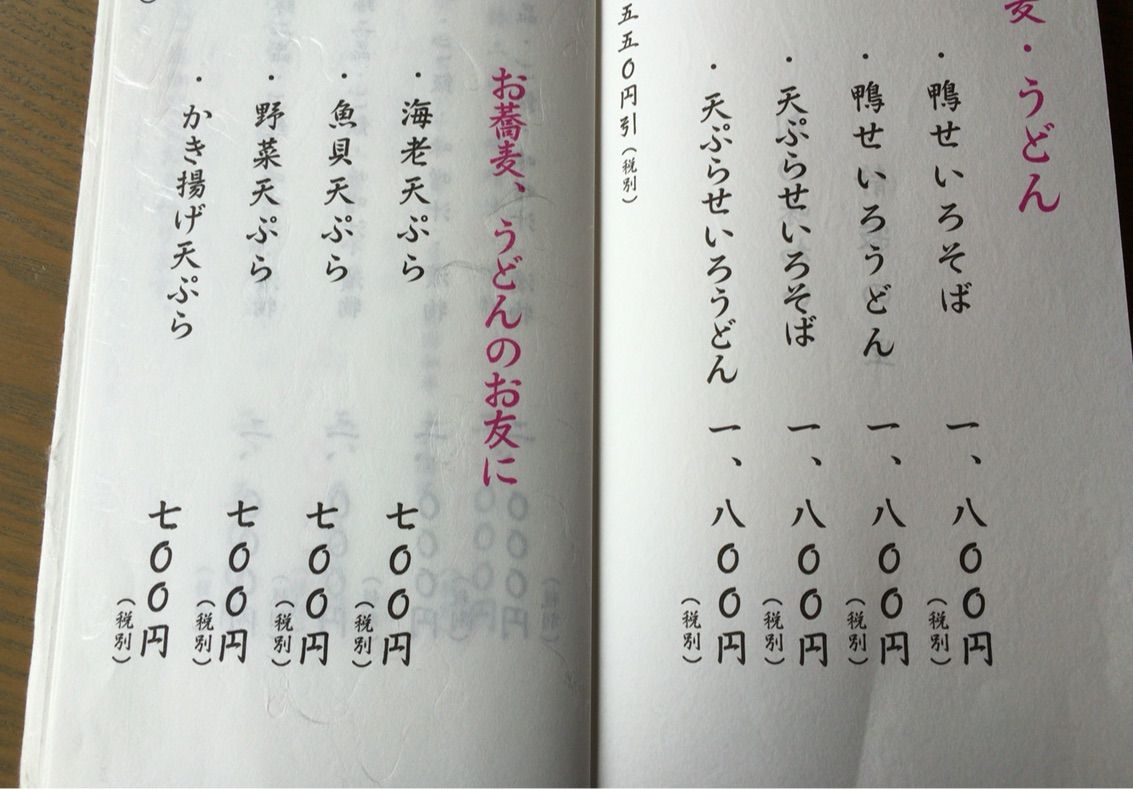 麦・うどん
・鴨せいろそば 一、八〇〇円（税別）
・鴨せいろうどん 一、八〇〇円（税別）
・天ぷらせいろそば 一、八〇〇円（税別）
・天ぷらせいろうどん 一、八〇〇円（税別）
五五〇円引（税別）
お蕎麦、うどんのお友に
・海老天ぷら 七〇〇円（税別）
・魚貝天ぷら 七〇〇円（税別）
・野菜天ぷら 七〇〇円（税別）
・かき揚げ天ぷら 七〇〇円（税別）